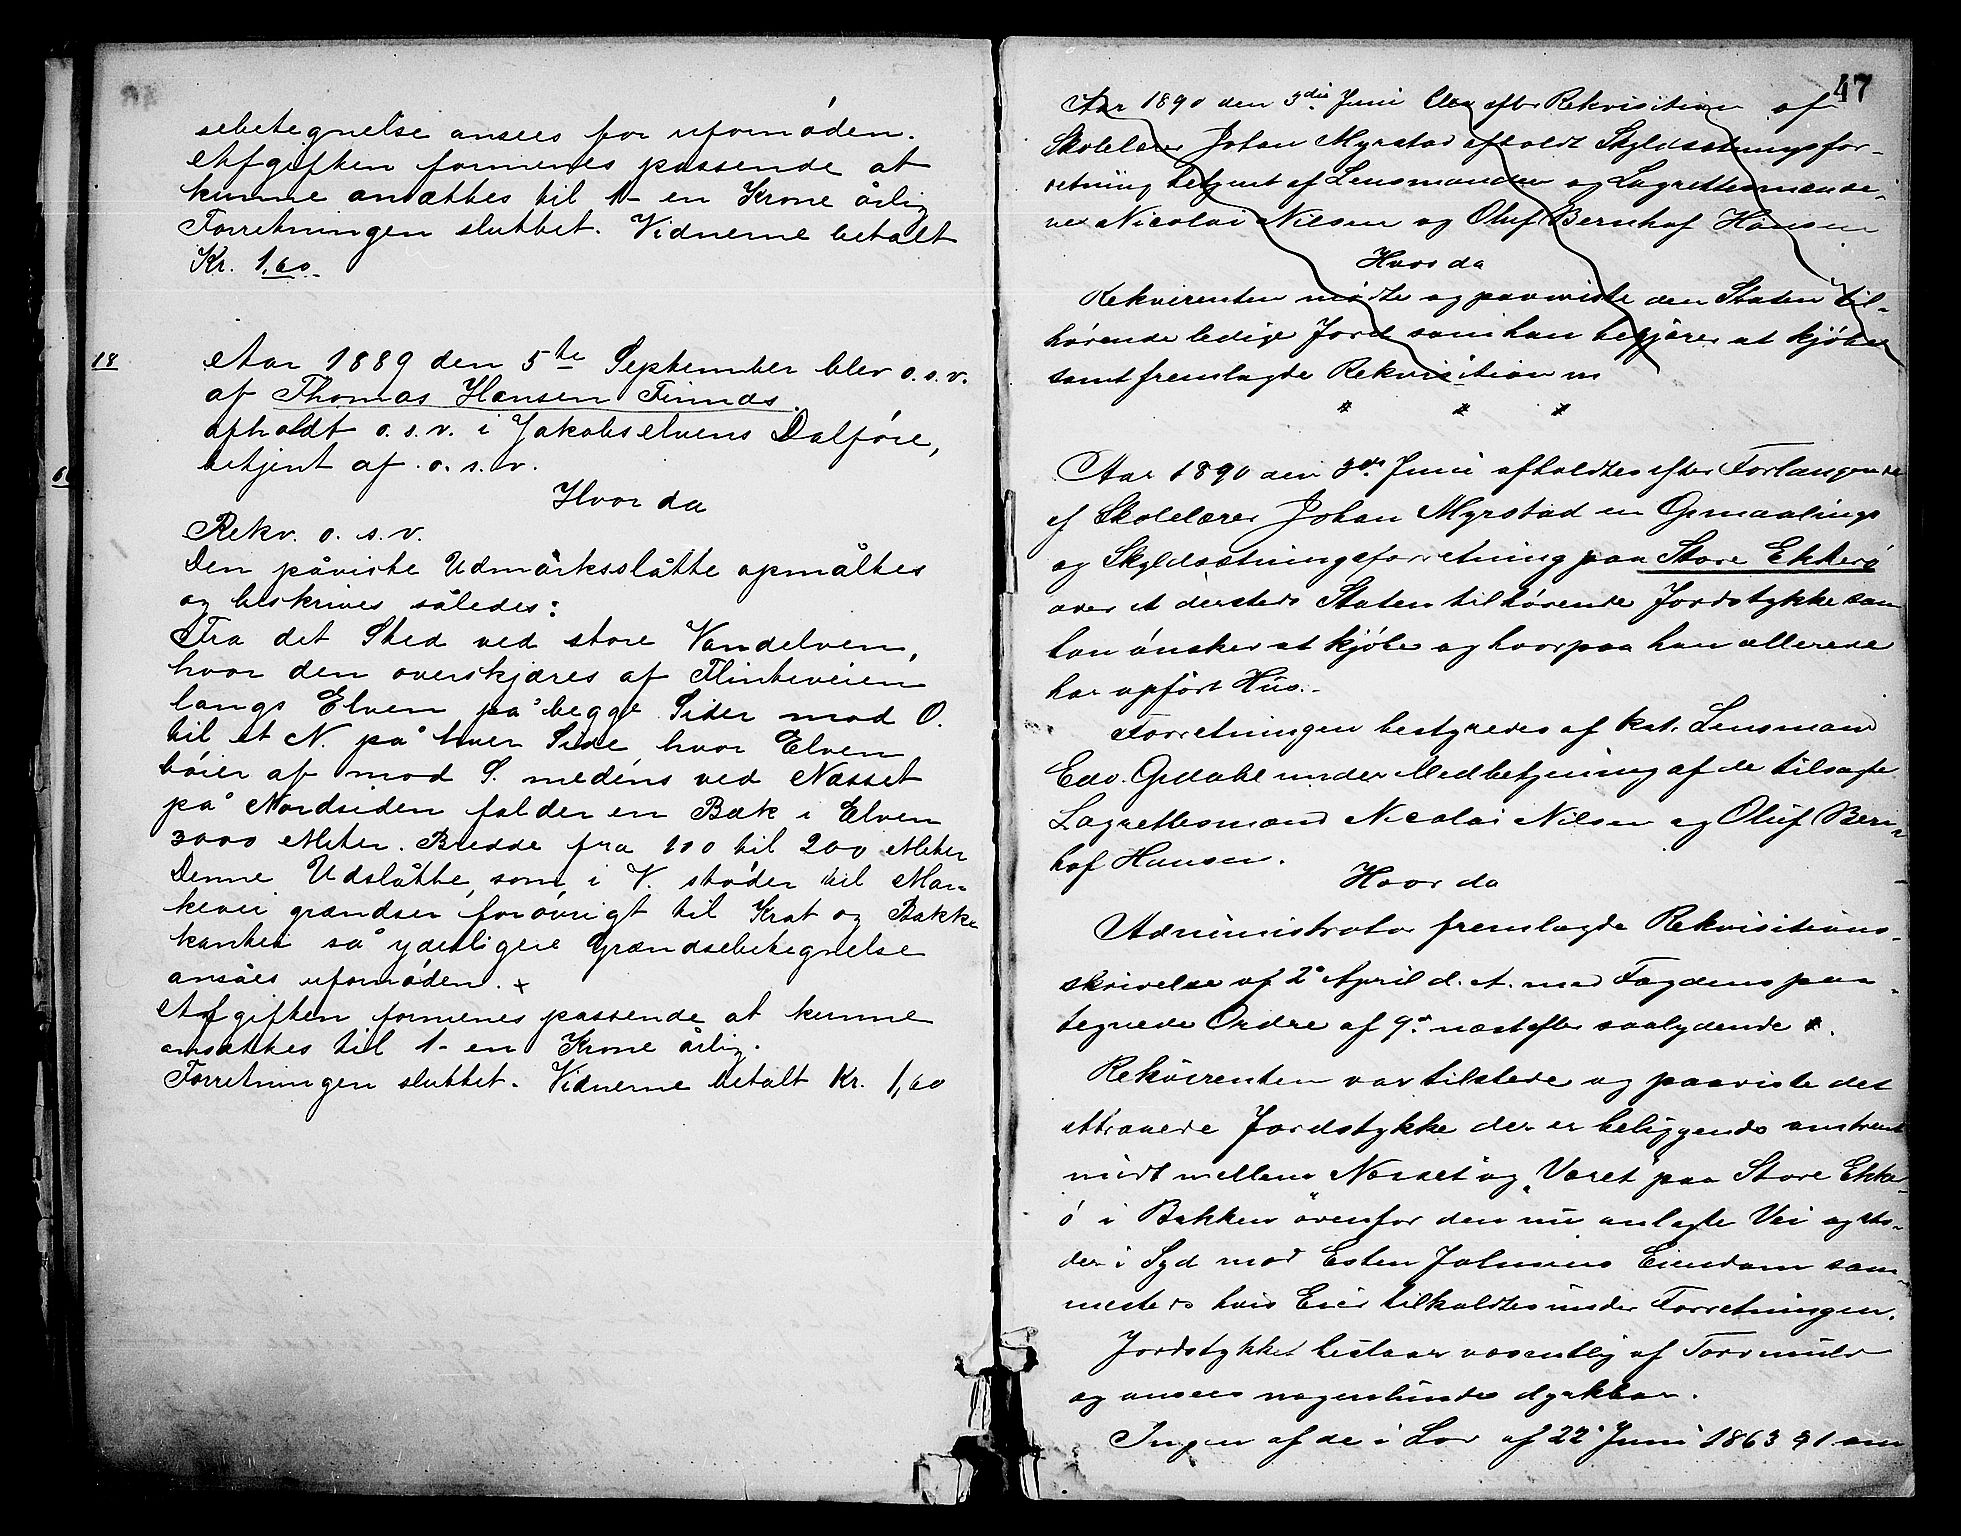 sebetegnelse ansees for ufornøden.
Afgiften formenes passende at
kunne ansættes til 1- en Krone årlig
Forretningen sluttet. Vidnerne betalt
Kr. 1,60.
18
Aar 1889 den 5te September blev o.s.v.
af Thomas Hansen Finnæs.
afholdt o.s.v. i Jakobselvens Dalføre,
betjent af o.s.v.
Hvorda
Rekv. o.s.v.
Den påviste Udmarksslåtte opmåltes
og beskrives således:
Fra det Sted ved store Vandelven,
hvor den overskjæres af Flinteveien
langs Elven på begge Sider mod O.
til et N. på hver Side hvor Elven
bøier af mod S. medens ved Næsset
på Nordsiden falder en Bæk i Elven
3000 Meter. Bredde fra 100 til 200 Meter
Denne Udslåtte, som i V. støder til Mar-
kevei grændser forøvrigt til Krat og Bakke
kanter så yderligere Grændsebetegnelse
ansåes ufornøden.
Afgiften formenes passende at kunne
ansættes til 1- en Krone årlig.
Forretningen sluttet. Vidnerne betalt Kr. 1,60
47
Aar 1890 den 3die Juni blev efter Rekvisition af
Skolelærer Johan Myrstad afholdt Skyldsætningsfor-
retning betjent af Lensmanden og Lagrettesmænde-
ne Nicolai Nilsen og Oluf Bernhof Hansen
Hvorda
Rekvirenten mødte og paaviste den Staten til-
hørende ledige Jord som han begjærer at kjøbe
samt fremlagde Rekvisition
Aar 1890 den 3die Juni afholdtes efter Forlangende
af Skolelærer Johan Myrstad en Opmaalings
og Skyldsætningsforretning paa Store Ekkerø
over et dersteds Staten tilhørende Jordstykke som
han ønsker at kjøbe og hvorpaa han allerede
har opført Hus.-
Forretningen bestyredes af kst. Lensmand
Edv. Opdahl under Medbetjening af de tilsagte
Lagrettesmænd Nicolai Nilsen og Oluf Bern-
hof Hansen.
Hvorda
Administrator fremlagde Rekvisitions-
skrivelse af 2' April d. A. med Fogdens paa-
tegnede Ordre af 9' næstefter saalydende
Rekvirenten var tilstede og paaviste det
attraaede Jordstykke der er beliggende omtrent
midt mellem Næsset og "Været" paa Store Ekker-
ø i Bakken ovenfor den nu anlagte Vei og stø-
der i Syd mod Esten Johnsens Eiendom sam-
mesteds hvis Eier tilkaldtes under Forretningen.
Jordstykket bestaar væsentlig af Torvmuld
og ansees nogenlunde dyrkbar.
Ingen af de i Lov af 22' Juni 1863 § 1 om